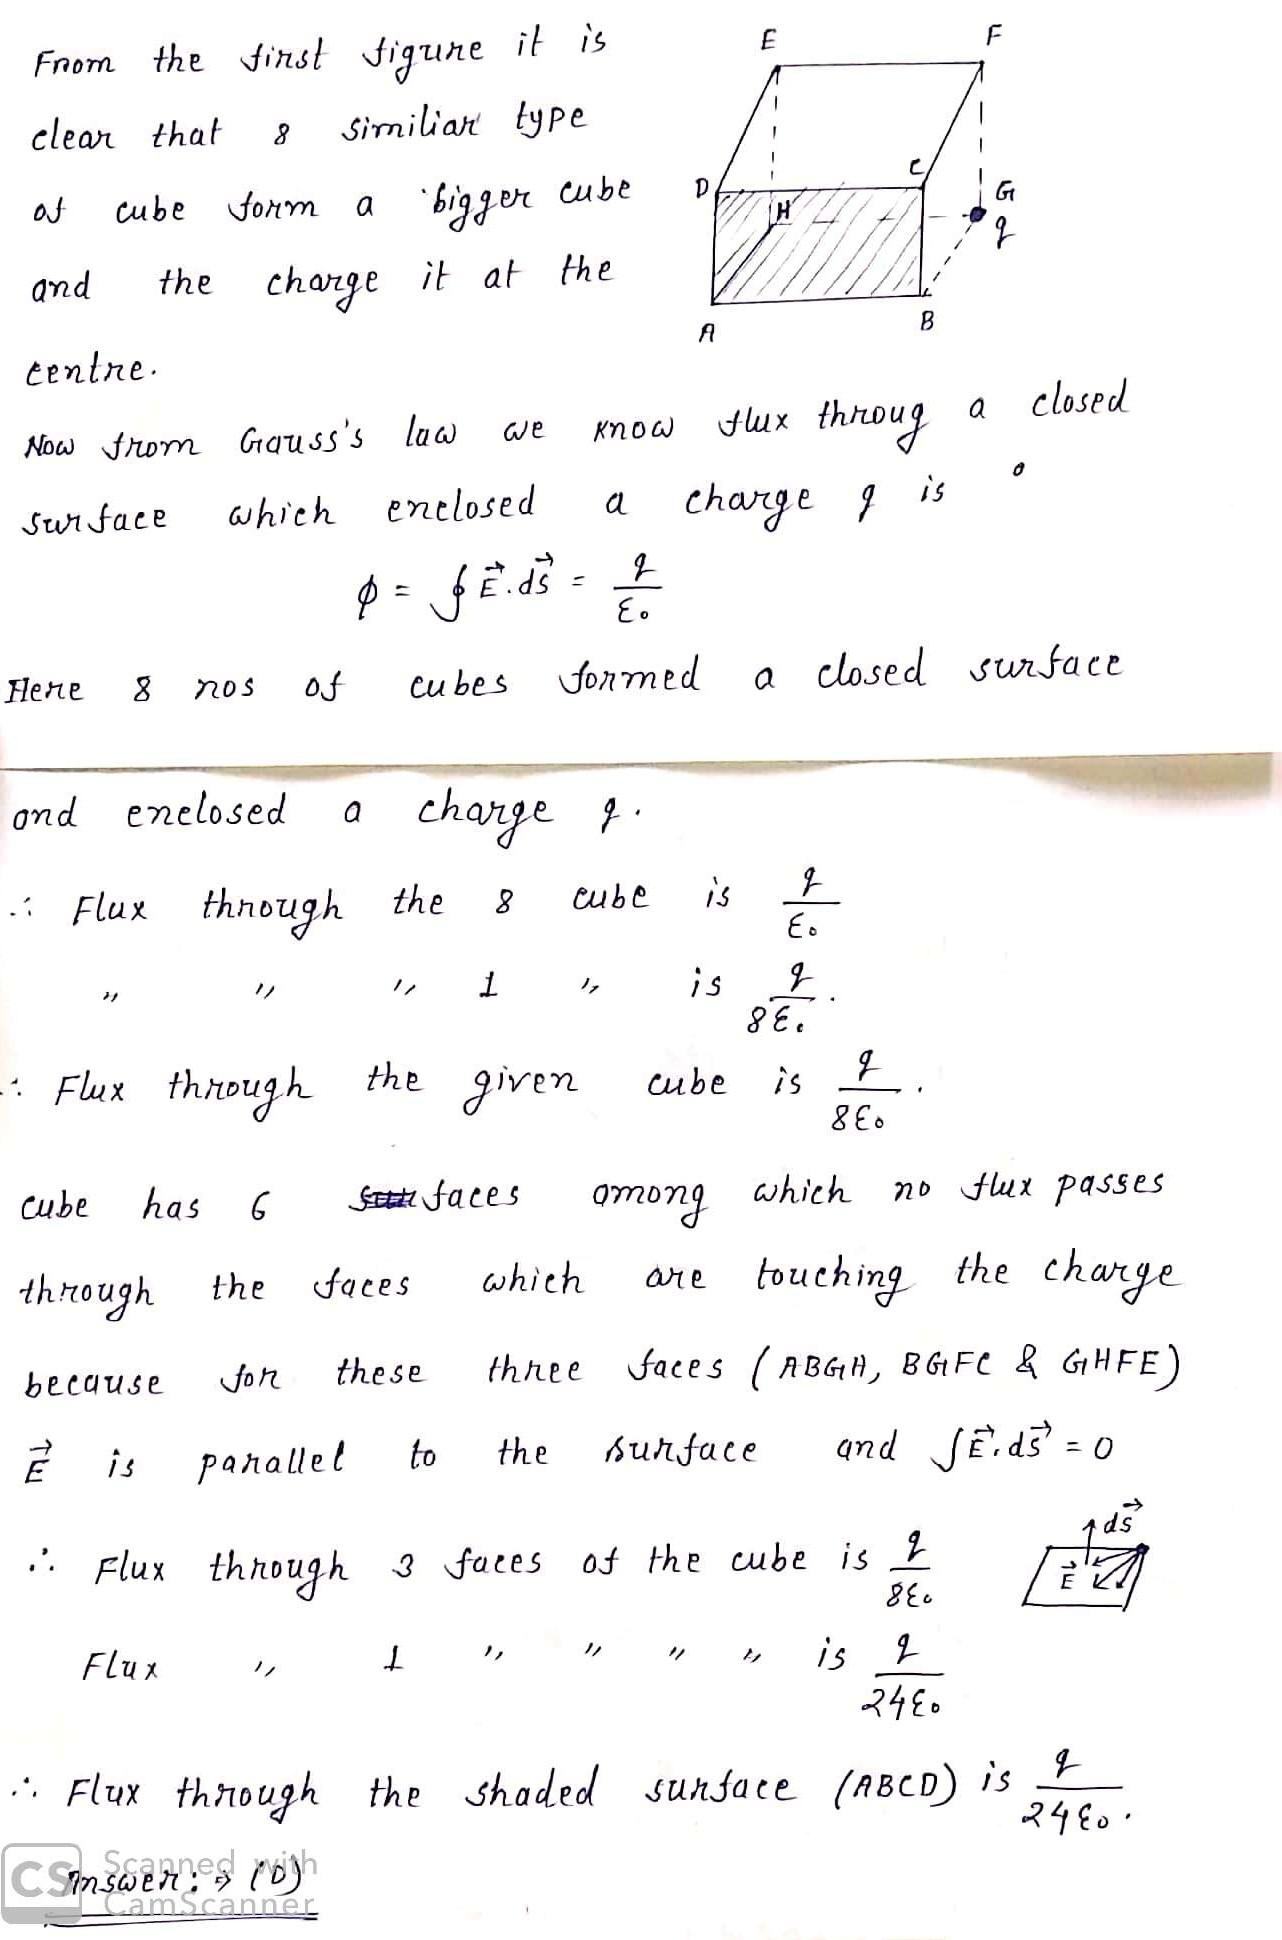 From the first figure it is
clear that 8 similiar type
of cube form a bigger cube
and the charge it at the
centre.
E F
D C G
H q
A B
Now from Gauss's law we know flux throug a closed
surface which enclosed a charge q is
ϕ = ∮ E⃗.ds⃗ = q/ε₀
Here 8 nos of cubes formed a closed surface
and enclosed a charge q.
∴ Flux through the 8 cube is q/ε₀
" " " 1 " is q/8ε₀.
∴ Flux through the given cube is q/8ε₀.
cube has 6 faces among which no flux passes
through the faces which are touching the charge
because for these three faces (ABGH, BGFC & GHFE)
E⃗ is parallel to the surface and ∫E⃗.ds⃗ = 0
∴ Flux through 3 faces of the cube is q/8ε₀
ds⃗
E⃗
Flux " 1 " " " " is q/24ε₀
∴ Flux through the shaded surface (ABCD) is q/24ε₀.
Answer: ⇒ (D)
CS Scanned with
CamScanner